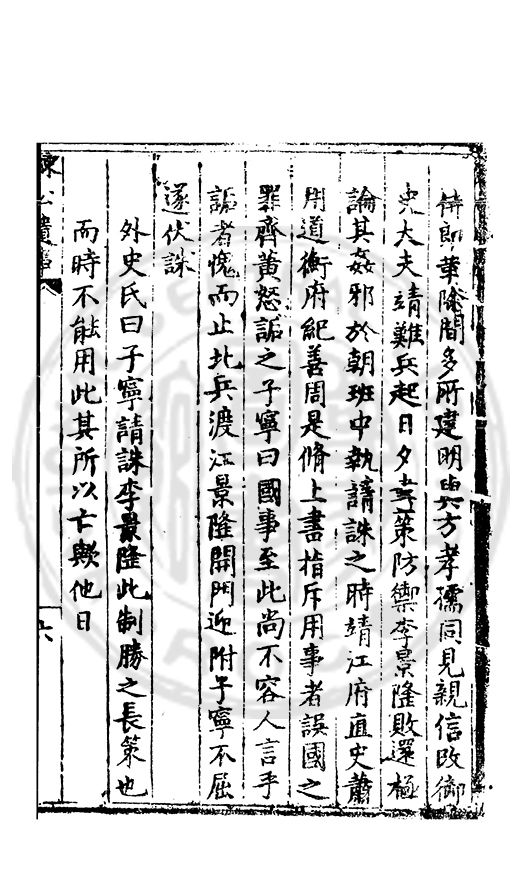 侍郎華除間多所建明與方孝孺同見親信改御
史大夫靖難兵起日夕籌策防禦李景隆敗還極
論其姦邪於朝班中執請誅之時靖江府直史蕭
用道衡府紀善周是脩上書指斥用事者誤國之
罪齊黃怒詬之子寧曰國事至此尚不容人言乎
詬者愧而止北兵渡江景隆開門迎附子寧不屈
遂伏誅
外史氏曰子寧請誅李景隆此制勝之長策也
而時不能用此其所以亡歟他日
公遺事
六